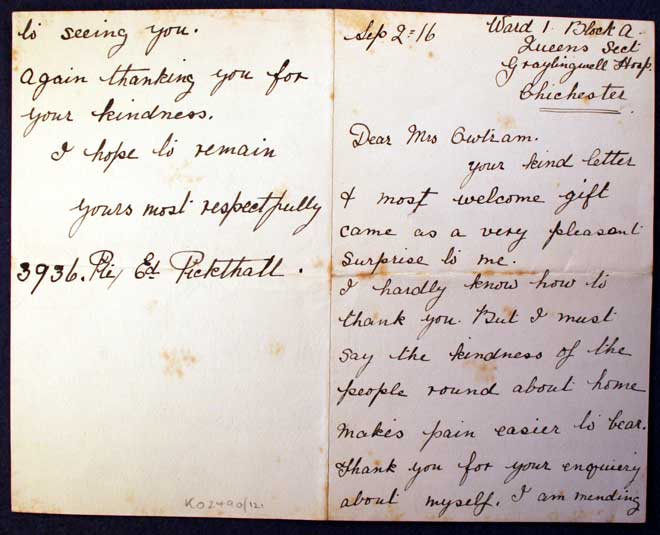 Sep 2=16
Ward 1. Block A.
Queens Sect
Graylingwell Hosp.
Chichester
Dear Mrs Owtram.
your kind letter
& most welcome gift
came as a very pleasant
surprise to me.
I hardly know how to
thank you. But I must
say the kindness of the
people round about home
makes pain easier to bear.
thank you for your enquiery
about myself. I am mending
to seeing you.
Again thanking you for
your kindness.
I hope to remain
yours most respectfully
3936. Pte Ed Pickthall.
KO2490/121